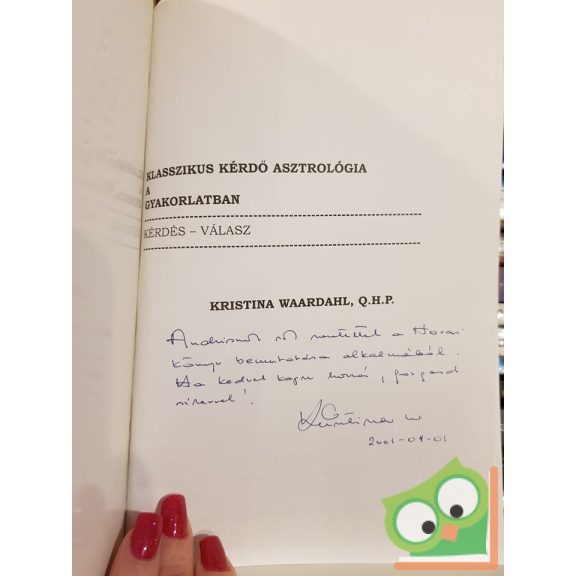 KLASSZIKUS KÉRDŐ ASZTROLÓGIA
A
GYAKORLATBAN
KÉRDÉS – VÁLASZ
KRISTINA WAARDAHL, Q.H.P.
sok szeretettel a Horar
könyv bemutatása alkalmából.
Ha kedved hozzá, forgasd
sikerrel!
Kristina W
2001-09-01